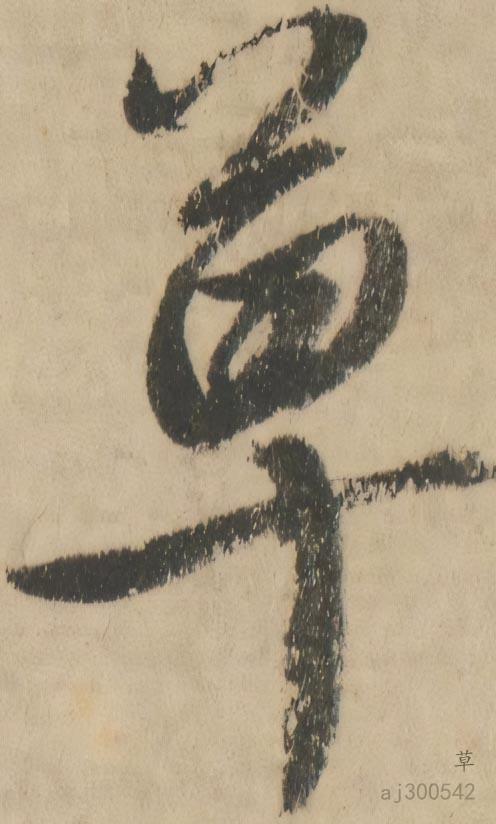 草
草
aj300542